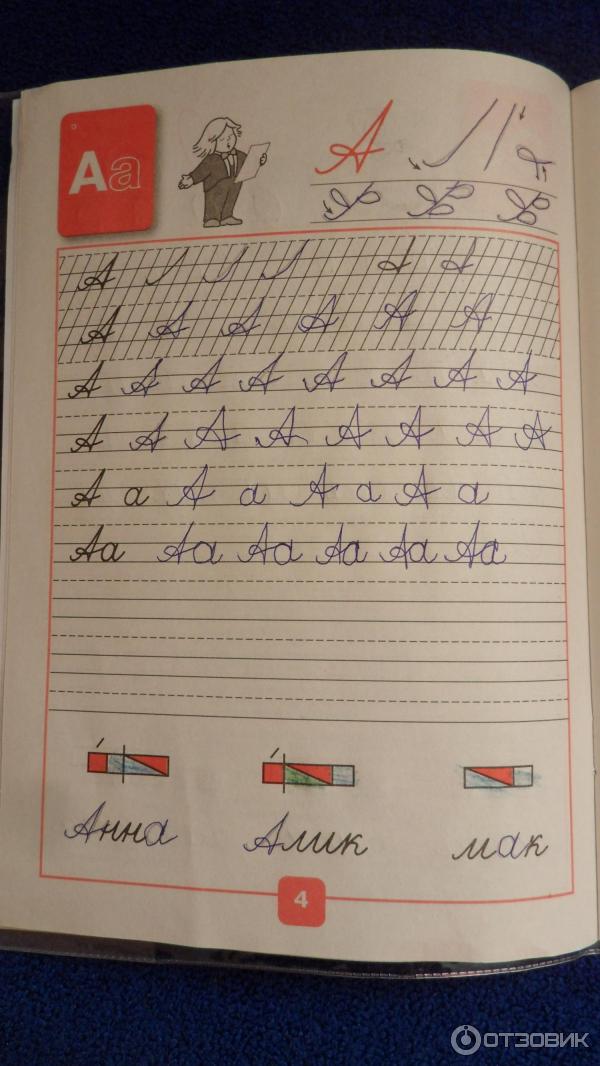 Аа
А
А
А А А А А А
А А А А А А А А
А А А А А А А А
А а А а А а А а
Аа Аа Аа Аа Аа Аа
Анна Алик мак
4
ОТЗОВИК